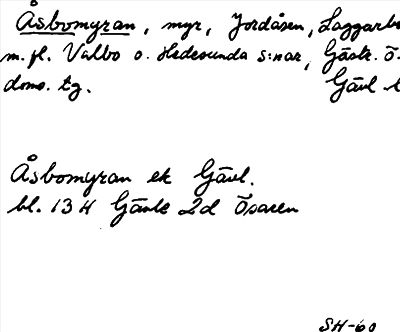 Åsbomyran, myr, Jordåsen, Laggarbo
m. fl. Valbo o. Hedesunda s:nar, Gästr. ö.
doms. tg. Gävl. l
Åsbomyran ek Gävl.
bl. 13 H Gävle 2d Ösaren
SH-60